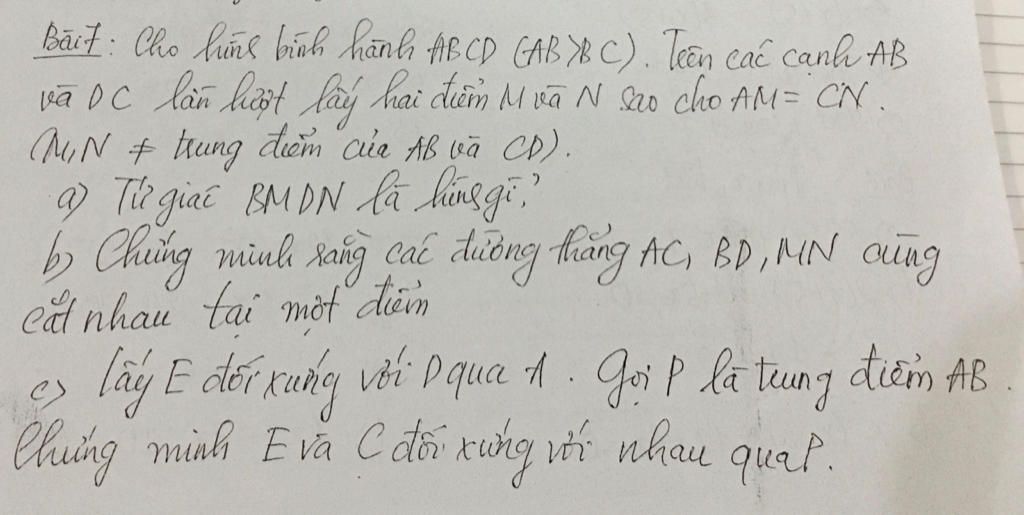 Bài 7: Cho hình bình hành ABCD (AB>BC). Trên các cạnh AB
và DC lần lượt lấy hai điểm M và N sao cho AM = CN.
(M,N ≠ trung điểm của AB và CD).
a) Tứ giác BMDN là hình gì?
b) Chứng minh rằng các đường thẳng AC, BD, MN cùng
cắt nhau tại một điểm
c) lấy E đối xứng với D qua A. Gọi P là trung điểm AB.
Chứng minh E và C đối xứng với nhau qua P.